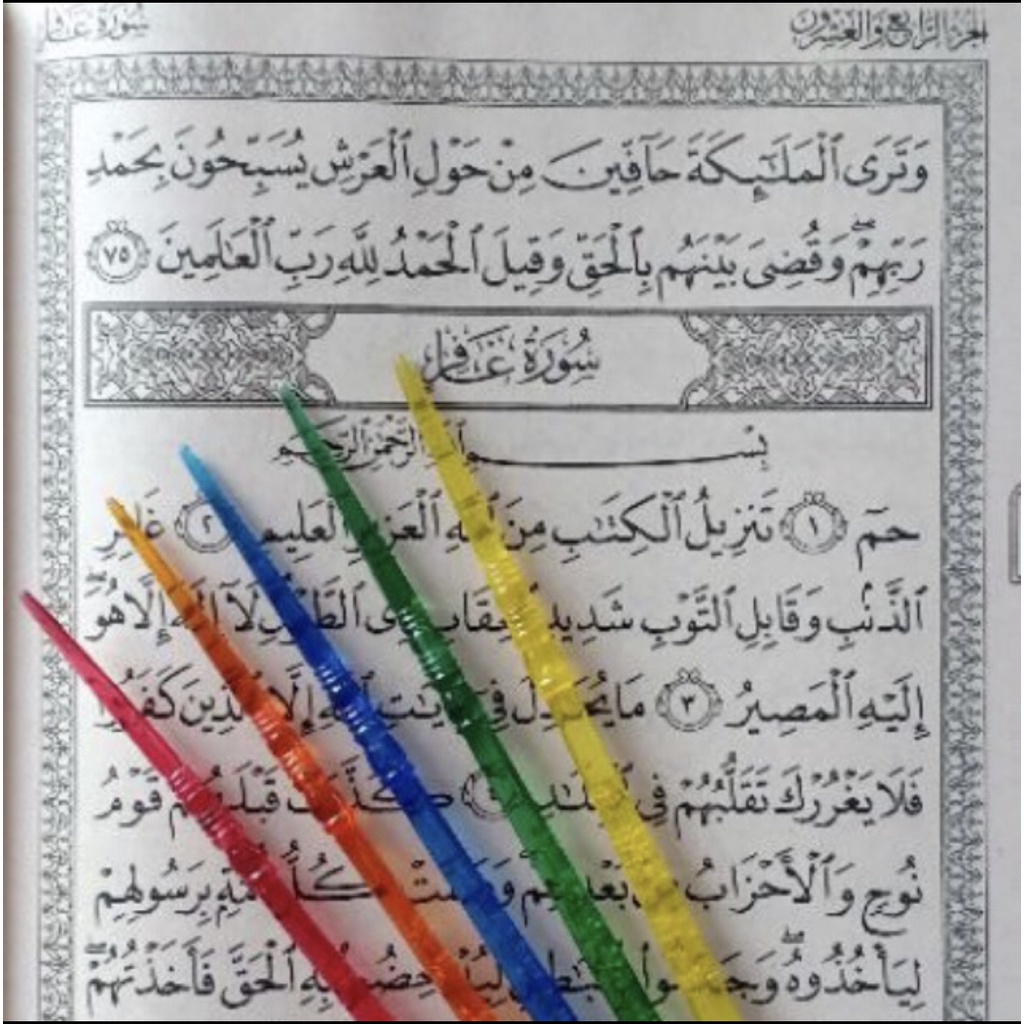 الجزء الرابع والعشرون سُورَةُ غَافِرٍ
وَتَرَى ٱلْمَلَٰٓئِكَةَ حَآفِّينَ مِنْ حَوْلِ ٱلْعَرْشِ يُسَبِّحُونَ بِحَمْدِ
رَبِّهِمْ ۖ وَقُضِىَ بَيْنَهُم بِٱلْحَقِّ وَقِيلَ ٱلْحَمْدُ لِلَّهِ رَبِّ ٱلْعَٰلَمِينَ ٧٥
سُورَةُ غَافِرٍ
بِسْمِ ٱللَّهِ ٱلرَّحْمَٰنِ ٱلرَّحِيمِ
حمٓ ١ تَنزِيلُ ٱلْكِتَٰبِ مِنَ ٱللَّهِ ٱلْعَزِيزِ ٱلْعَلِيمِ ٢ غَافِرِ
ٱلذَّنۢبِ وَقَابِلِ ٱلتَّوْبِ شَدِيدِ ٱلْعِقَابِ ذِى ٱلطَّوْلِ لَآ إِلَٰهَ إِلَّا هُوَ ۖ
إِلَيْهِ ٱلْمَصِيرُ ٣ مَا يُجَٰدِلُ فِىٓ ءَايَٰتِ ٱللَّهِ إِلَّا ٱلَّذِينَ كَفَرُوا۟
فَلَا يَغْرُرْكَ تَقَلُّبُهُمْ فِى ٱلْبِلَٰدِ ٤ كَذَّبَتْ قَبْلَهُمْ قَوْمُ
نُوحٍ وَٱلْأَحْزَابُ مِنۢ بَعْدِهِمْ ۖ وَهَمَّتْ كُلُّ أُمَّةٍۭ بِرَسُولِهِمْ
لِيَأْخُذُوهُ ۖ وَجَٰدَلُوا۟ بِٱلْبَٰطِلِ لِيُدْحِضُوا۟ بِهِ ٱلْحَقَّ فَأَخَذْتُهُمْ ۖ